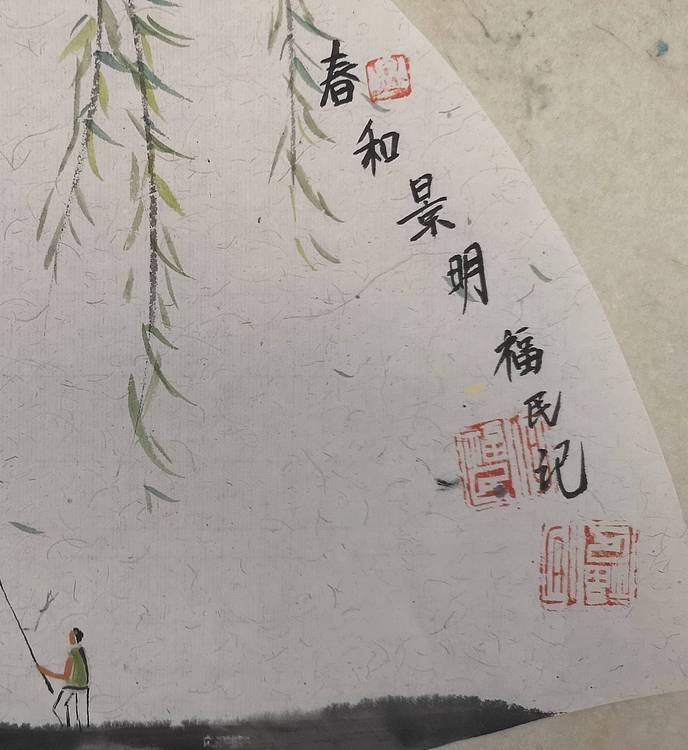 春和景明
福民记